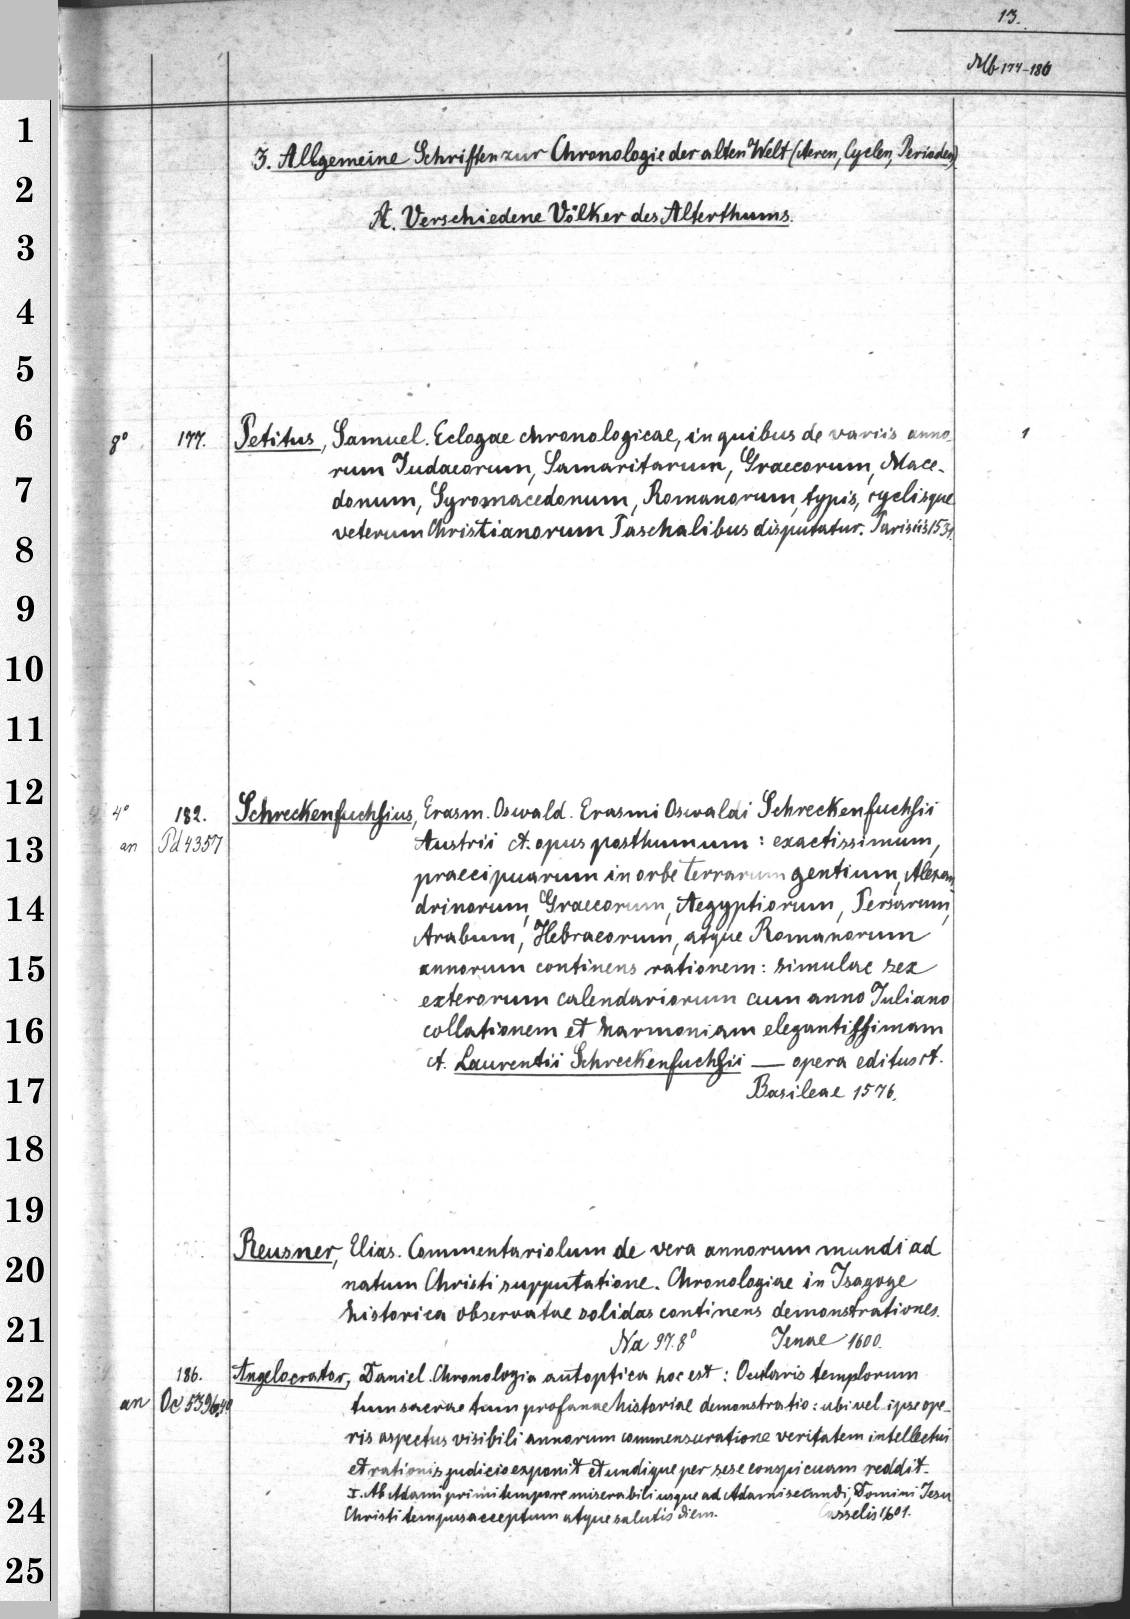 13.
Mb 174-186
3. Allgemeine Schriften zur Chronologie der alten Welt (Aeren, Cyclen, Perioden)
A. Verschiedene Völker des Alterthums.
8° 177. Petitus, Samuel. Eclogae chronologicae, in quibus de variis anno- 1
rum Judaeorum, Samaritarum, Graecorum, Mace-
donum, Syromacedonum, Romanorum typis, cyclisque
veterum Christianorum Paschalibus disputatur. Parisiis 1531.
4° 182. Schreckenfuchsius, Erasm. Oswald. Erasmi Oswaldi Schreckenfuchsii
an Pd 4357 Austrii ct. opus posthumum: exactissimum,
praecipuarum in orbe terrarum gentium, Alexan-
drinorum, Graecorum, Aegyptiorum, Persarum,
Arabum, Hebraeorum, atque Romanorum
annorum continens rationem: simulac sex
exterorum calendariorum cum anno Juliano
collationem et harmoniam elegantissimam
ct. Laurentii Schreckenfuchsii — opera editus ct.
Basileae 1576.
Reusner, Elias. Commentariolum de vera annorum mundi ad
natum Christi supputatione. Chronologiae in Isagoge
historica observatae solidas continens demonstrationes.
Na 97. 8° Jenae 1600.
186. Angelocrator, Daniel. Chronologia autoptica hoc est: Ocularis templorum
an Oc 5396 tum sacrae tam profanae historiae demonstratio: ubi vel ipse ope-
ris aspectus visibili annorum commensuratione veritatem intellectui
et rationis judicio exponit et undique per sese conspicuam reddit.
I. Ab Adami primi tempore miserabili usque ad Adami secundi, Domini Jesu
Christi tempus acceptum atque salutis diem. Casselis 1601.
1
2
3
4
5
6
7
8
9
10
11
12
13
14
15
16
17
18
19
20
21
22
23
24
25